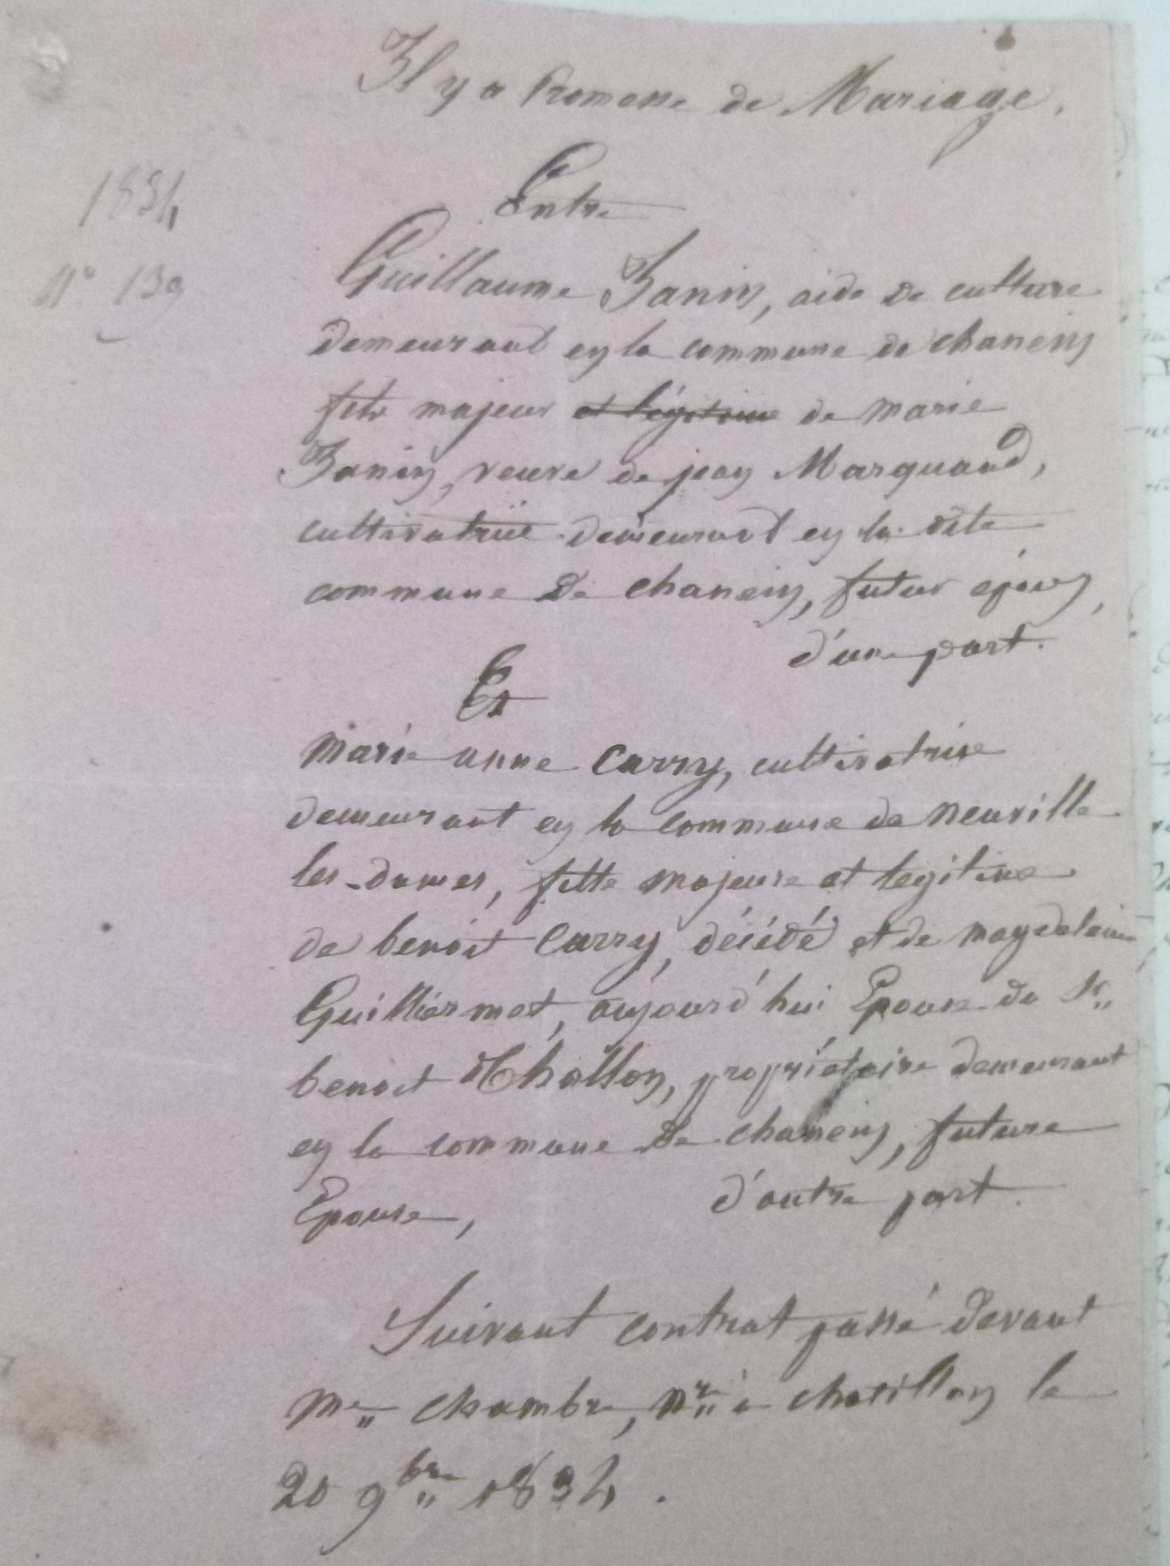 Il y a Promesse de Mariage,
Entre
1834
n° 139
Guillaume Janin, aide de culture
demeurant en la commune de chanein
fils majeur et légitime de marie
Janin, veuve de jean Marquand,
cultivatrice demeurant en la dite
commune De chanein, futur époux,
d'une part.
Et
marie anne Carry, cultivatrice
demeurant en la commune de neuville
les-dames, fille majeure et legitime
de benoit Carry, décédé et de magdelaine
Guilliermet, aujourd'hui Epouse du Sr
benoit Chollon, propriétaire demeurant
en la commune De chanein, future
Epouse, d'autre part.
Suivant contrat passé devant
me chambre, nre à chatillon le
20 9bre 1834.